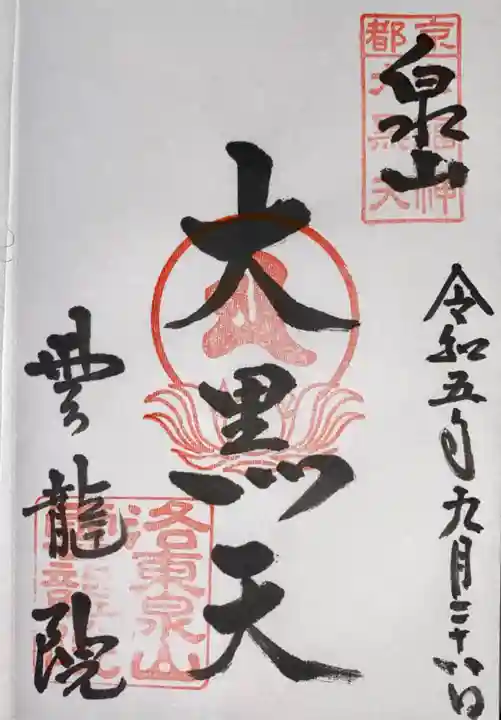 泉山
京都七福神
大黒天
令和五年九月二十八日
大黒天
雲龍院
洛東泉山
雲龍院